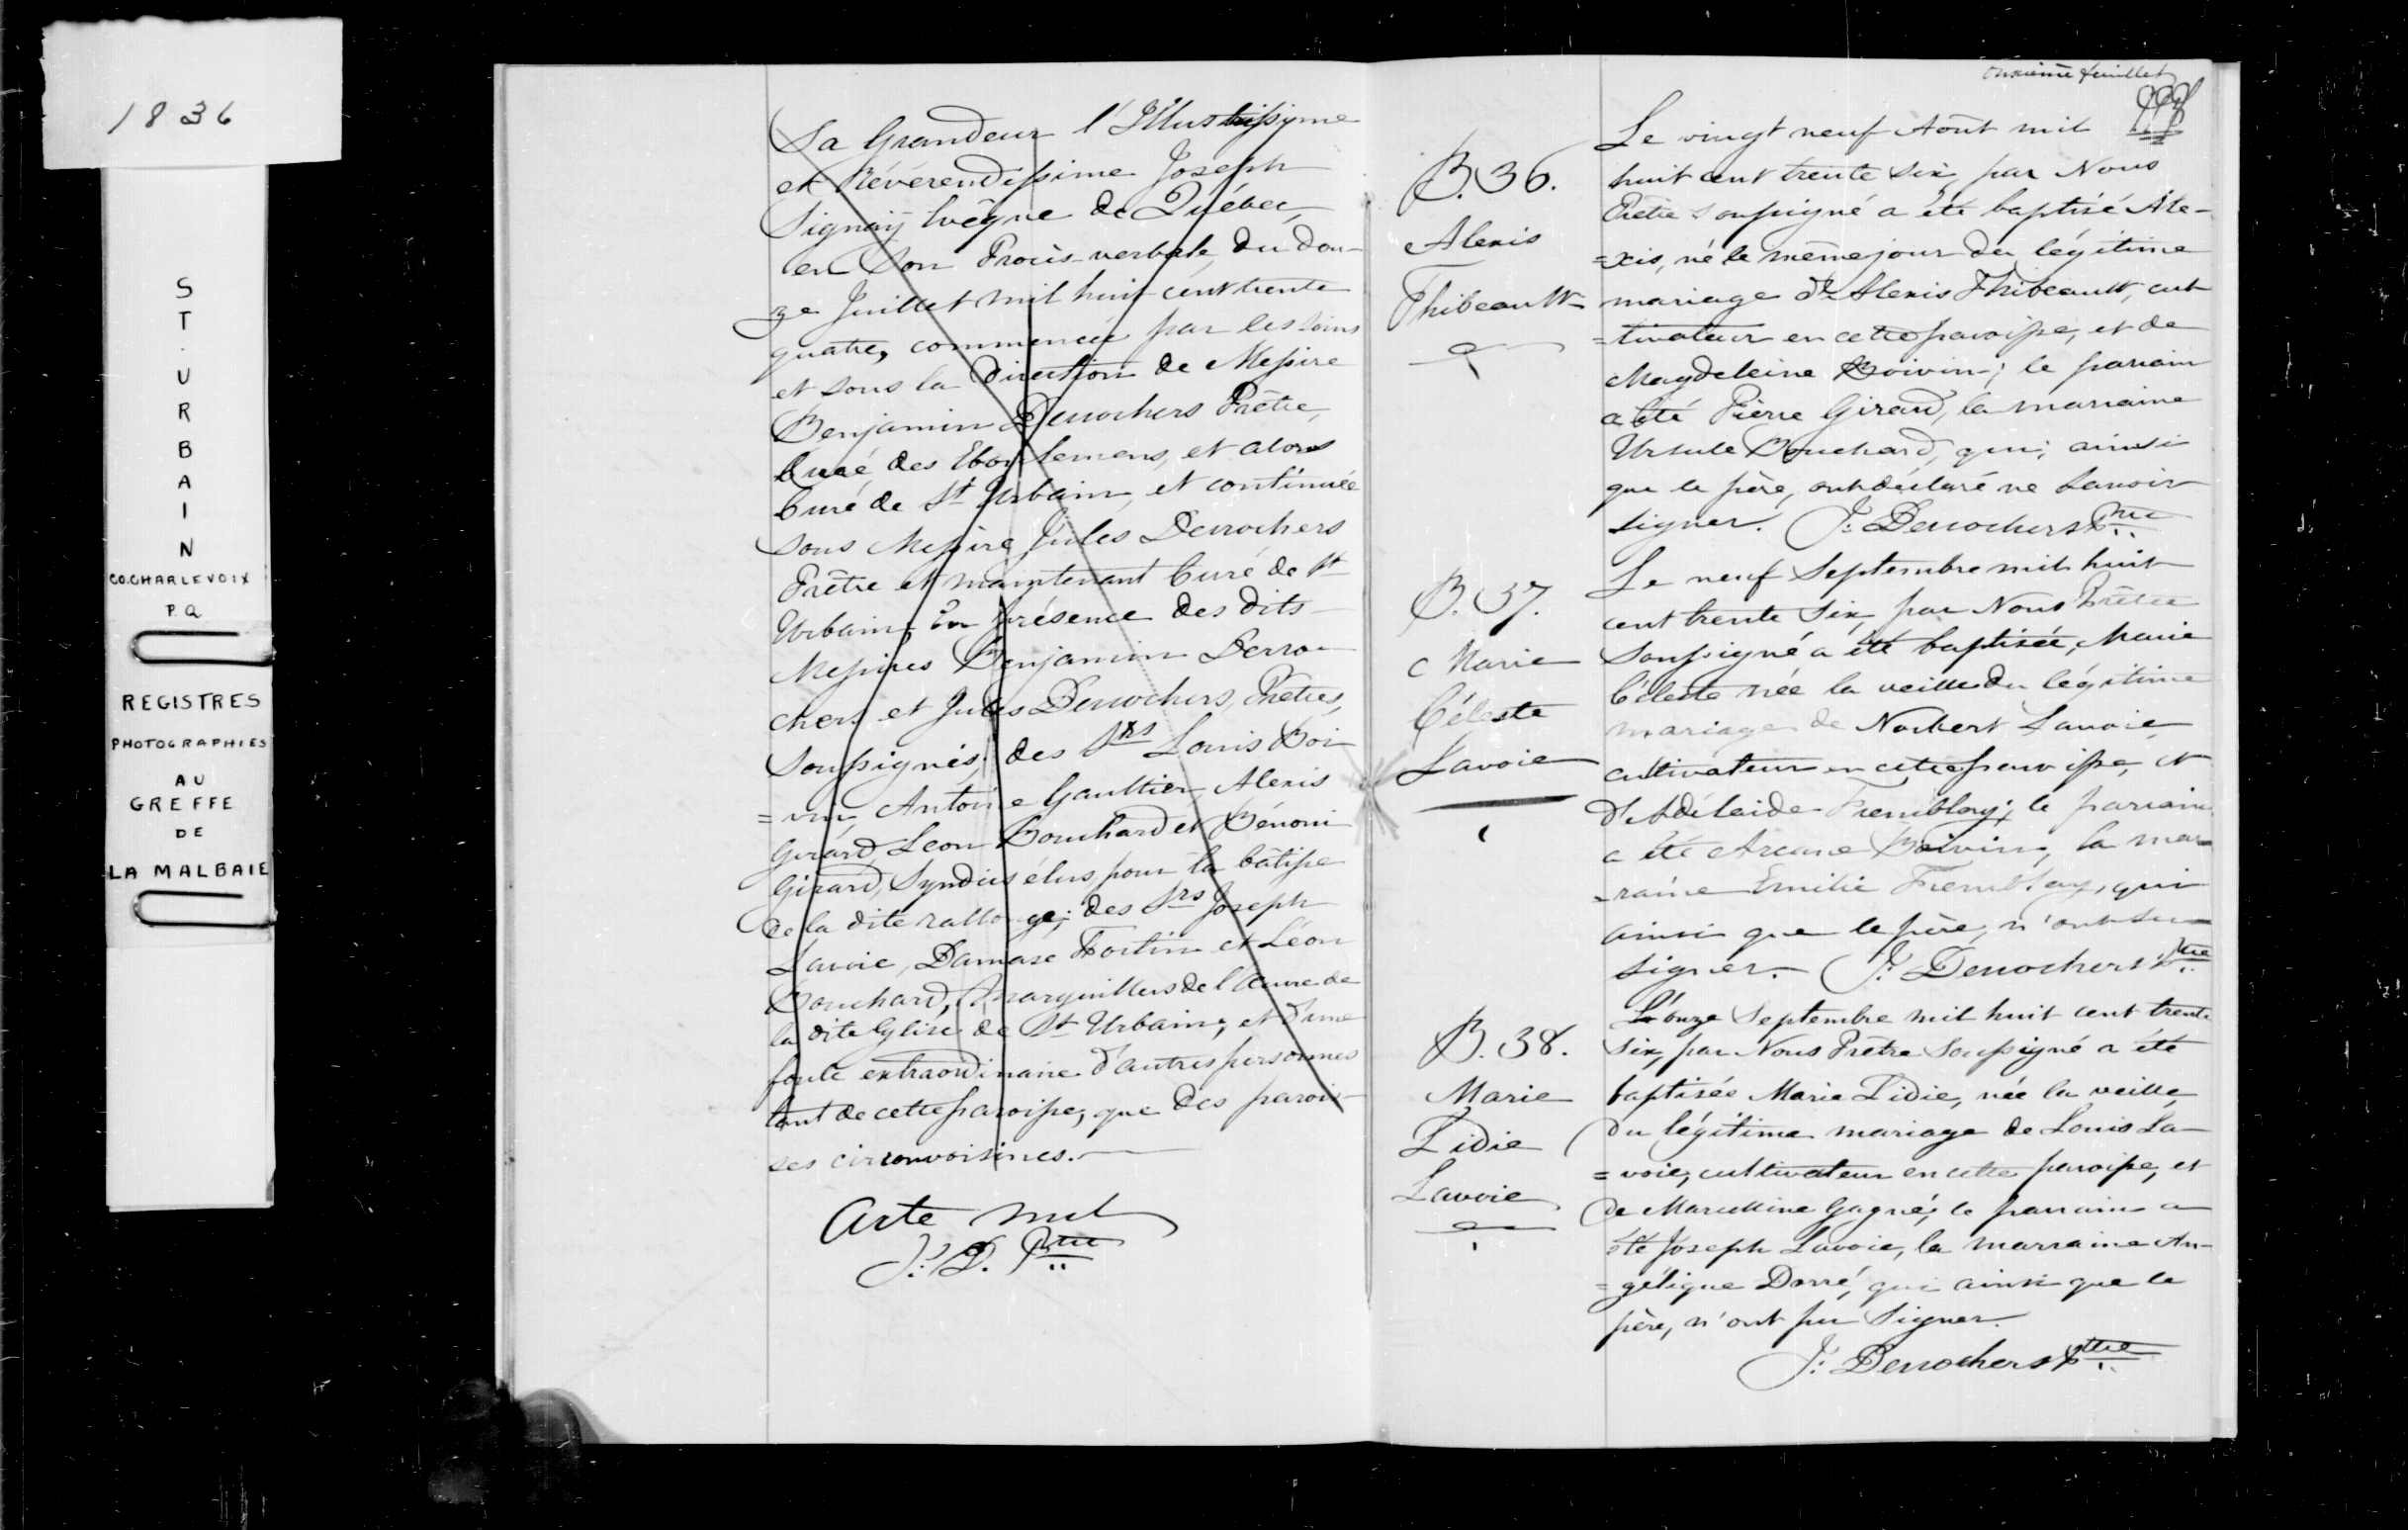 1836
ST. URBAIN
CO. CHARLEVOIX
P.Q
REGISTRES
PHOTOGRAPHIES
AU
GREFFE
DE
LA MALBAIE
Sa Grandeur l'Illustrissime
et Révérendissime Joseph
Signaÿ Evêque de Québec,
en Son Procès-verbal, du dou-
ze Juillet mil huit cent trente
quatre, commencée par les soins
et sous la direction de Messire
Benjamin Derrochers Prêtre,
Curé des Eboulemens, et alors
Curé de St Urbain, et continuée
sous Messire Jules Derrochers
Prêtre et maintenant Curé de St
Urbain, en présence des dits
Messires Benjamin Derro-
chers et Jules Derrochers, Prêtres,
Soussignés; des Srs Louis Boi
=vin Antoine Gaultier Alexis
Girard, Leon Bouchard et Bénoni
Girard, Syndics élus pour la bâtisse
de la dite rallonge; des Srs Joseph
Lavoie, Damase Fortin et Léon
Bouchard, Marguilliers de l'Œuvre de
la dite Eglise de St Urbain, et d'une
foule extraordinaire d'autres personnes
tant de cette paroisse, que des parois-
ses circonvoisines.
Acte nul
J: D. Ptre
onzième feuillet
B. 36.
Alexis
Thibeault
Le vingt neuf Août mil
huit cent trente six, par Nous
Prêtre soussigné a été baptisé Ale-
=xis, né le même jour du légitime
mariage d'Alexis Thibeault, cul-
=tivateur en cette paroisse, et de
Magdeleine Boivin; le parrain
a été Pierre Girard, la marraine
Ursule Bouchard, qui, ainsi
que le père, ont déclaré ne savoir
signer. J: Derrochers Ptre
B. 37.
Marie
Céleste
Lavoie
Le neuf Septembre mil huit
cent trente six, par Nous Prêtre
Soussigné a été baptisée, Marie
Céleste née la veille du légitime
mariage de Norbert Lavoie,
cultivateur en cette paroisse, et
d'Adélaide Tremblay; le parrain
a été Arcene Boivin, la mar
=raine Emilie Tremblay, qui
ainsi que le père, n'ont su
signer. J: Derrochers Ptre
B. 38.
Marie
Lidie
Lavoie
L'onze Septembre mil huit cent trente
six, par Nous Prêtre Soussigné a été
baptisée Marie Lidie, née la veille,
du légitime mariage de Louis La-
=voie, cultivateur en cette paroisse, et
de Marcelline Gagné; le parrain a
été Joseph Lavoie, la marraine An-
=gélique Dorré, qui ainsi que le
père, n'ont pu signer.
J: Derrochers Ptre